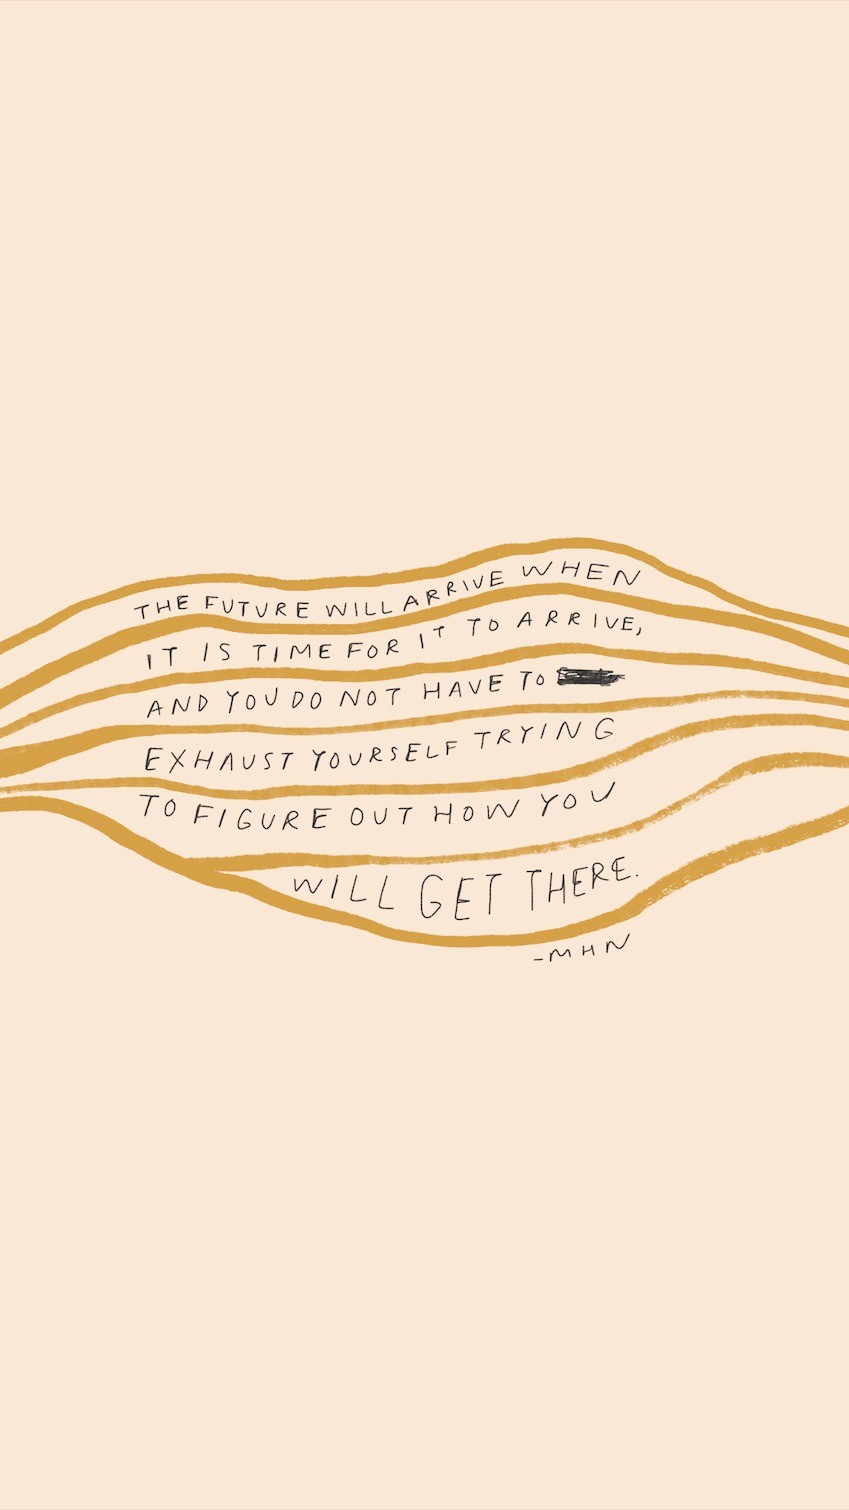 THE FUTURE WILL ARRIVE WHEN
IT IS TIME FOR IT TO ARRIVE,
AND YOU DO NOT HAVE TO
EXHAUST YOURSELF TRYING
TO FIGURE OUT HOW YOU
WILL GET THERE.
-MHN